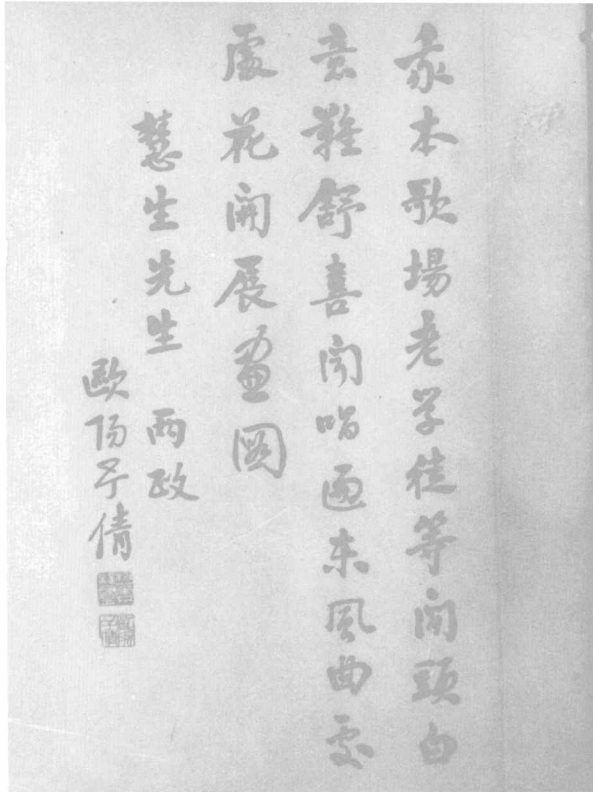 我本歌場老学徒等閑頭白
意難舒喜聞唱遍東風曲處
處花開展畫圖
慧生先生 兩政
歐陽予倩